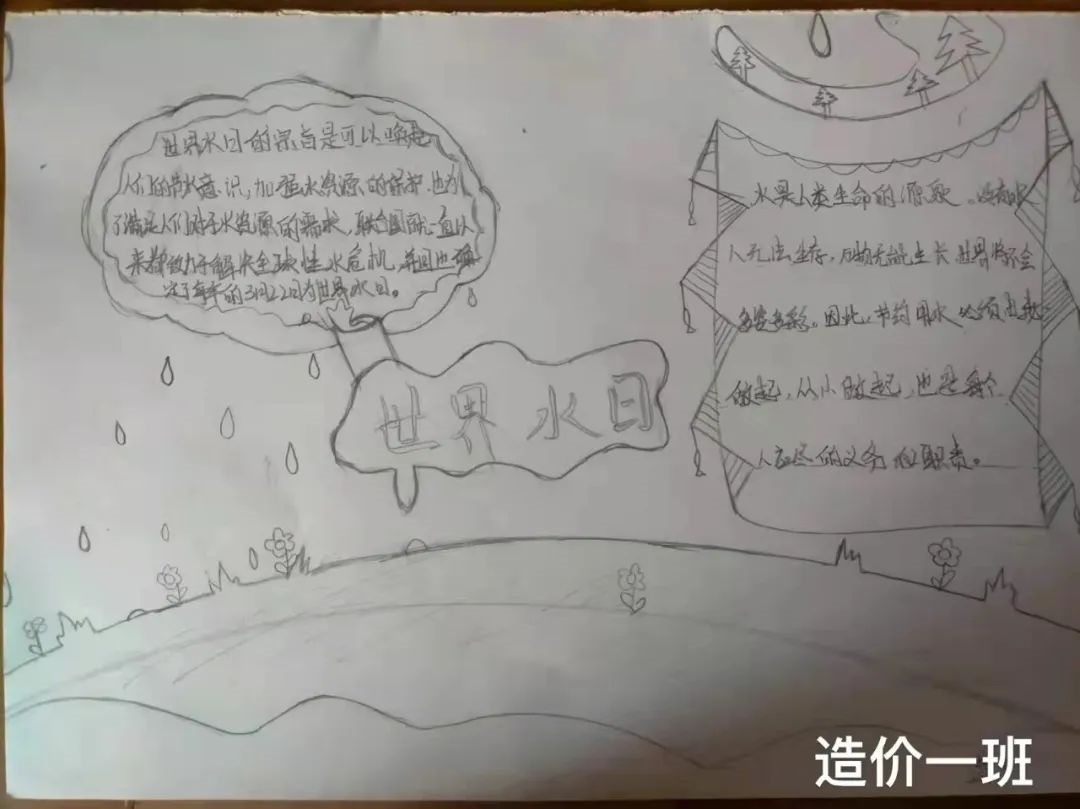 世界水日的宗旨是可以唤起
人们的节水意识,加强水资源的保护,也为
了满足人们对于水资源的需求,联合国就一直以
来都致力于解决全球性水危机,并且也确
定了每年的3月22日为世界水日。
世界水日
水是人类生命的源泉。没有水
人无法生存,万物无能生长,世界将不会
多姿多彩。因此,节约用水必须由我
做起,从小做起,也是每个
人应尽的义务和职责。
造价一班